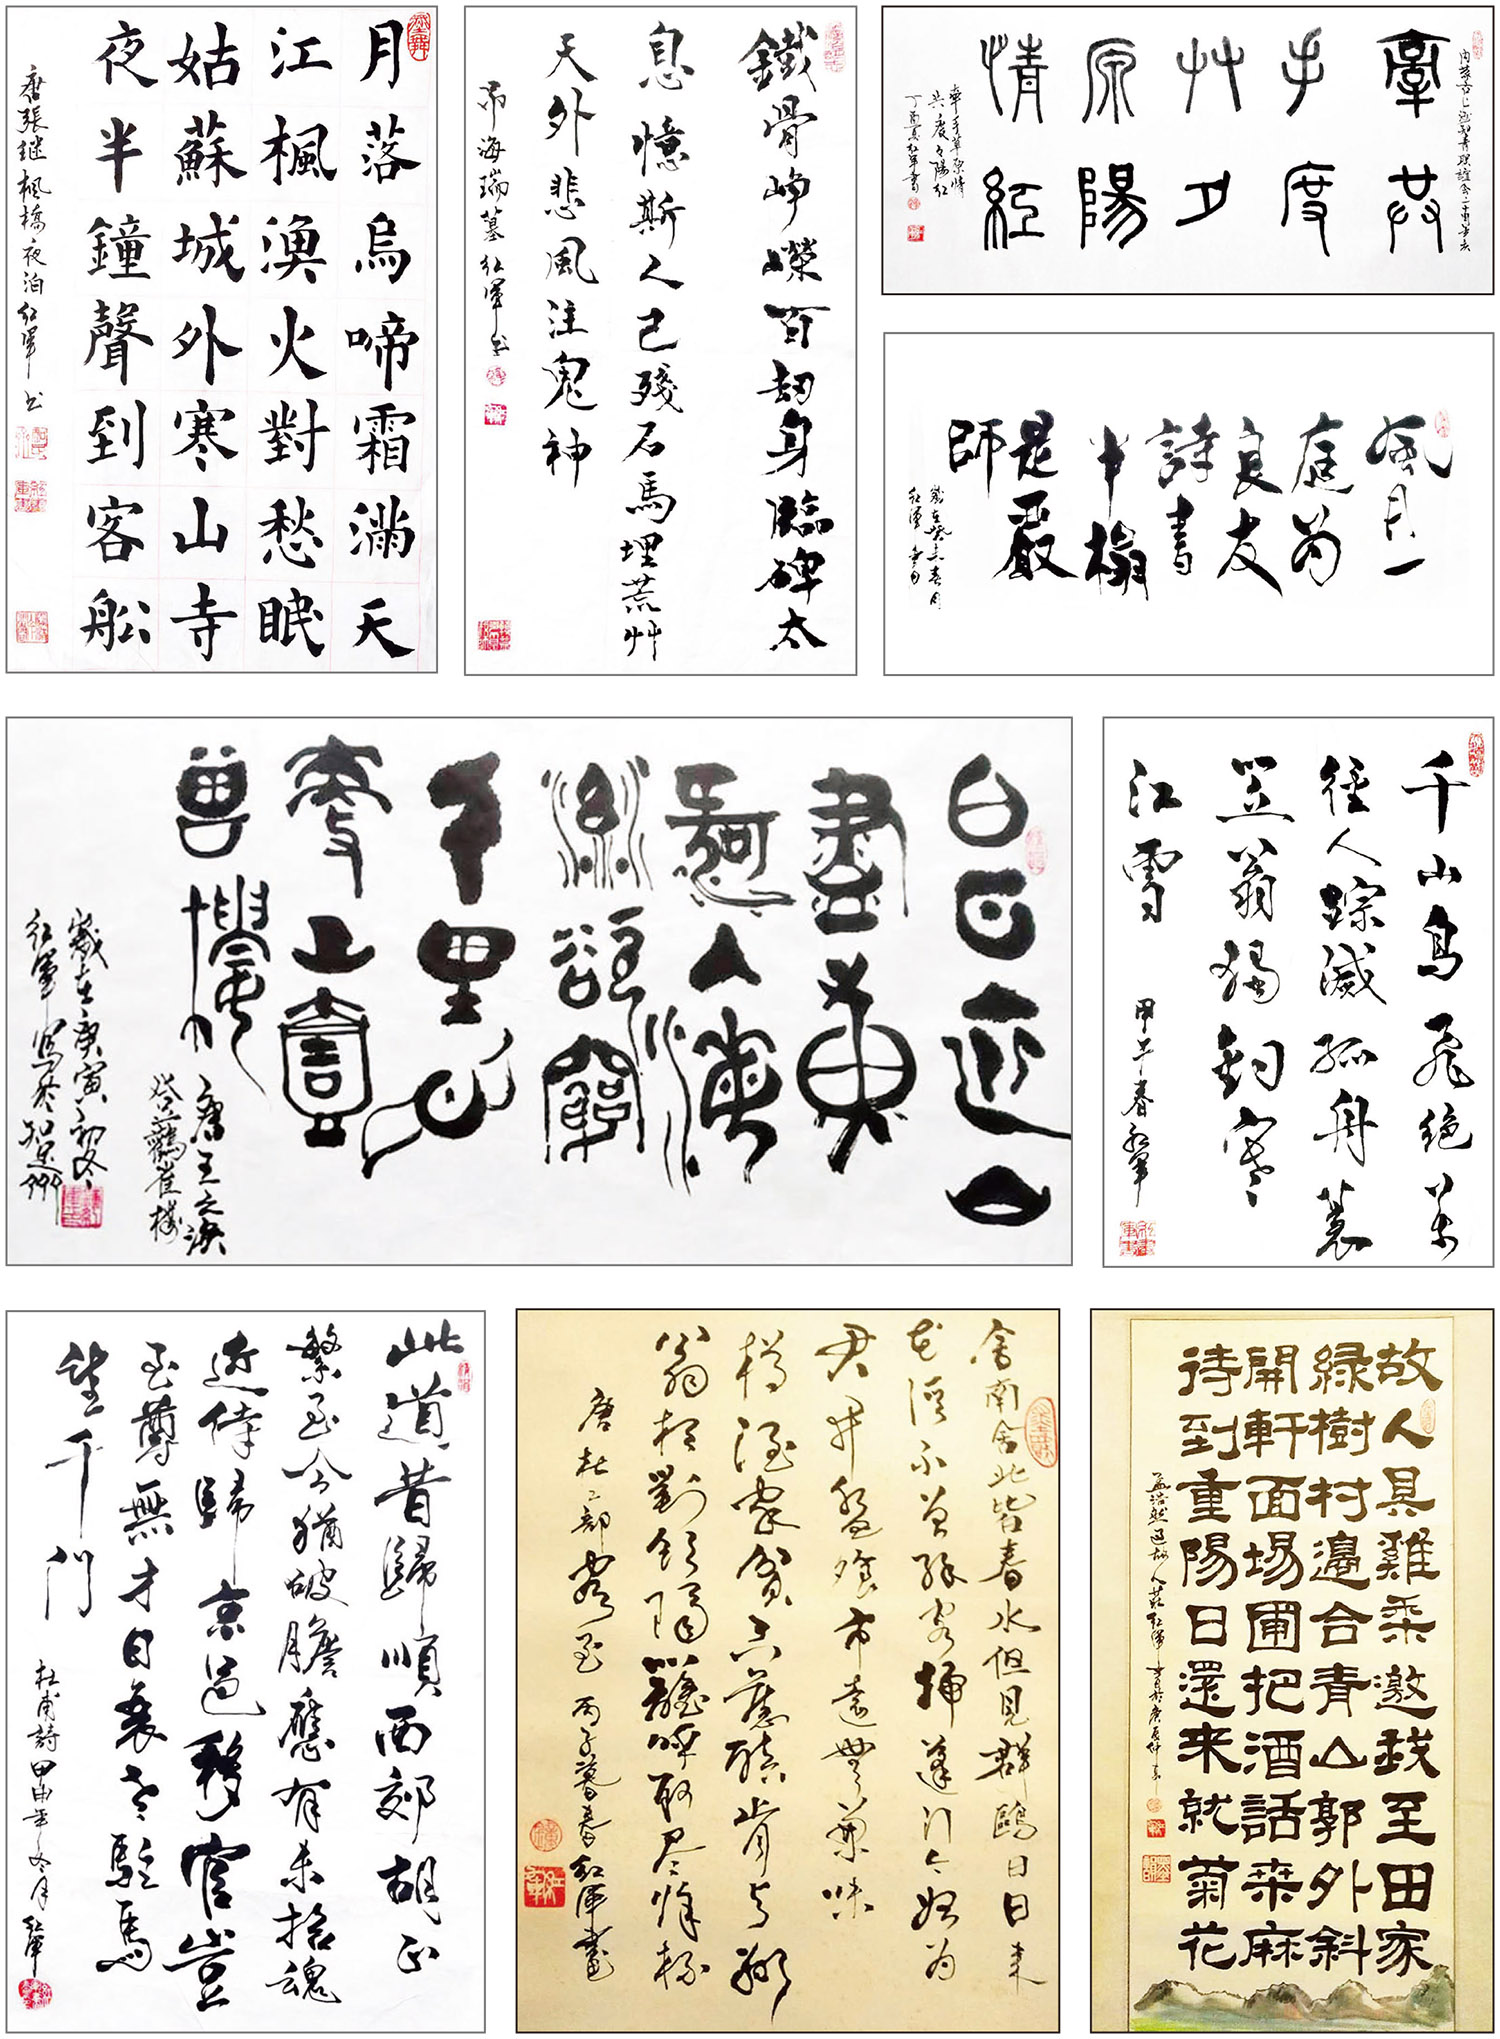 月落烏啼霜滿天
江楓漁火對愁眠
姑蘇城外寒山寺
夜半鐘聲到客船
唐張继楓橋夜泊红軍书
鐵骨崢嶸百劫身臨碑太
息憶斯人已殘石馬埋荒艸
天外悲風泣鬼神
吊海瑞墓红軍书
牽共
手度
艸夕
原陽
情紅
牽手草原情
共度夕陽红
丁酉夏红軍書
風月一
庭为
良友
詩書
半榻
是嚴
師
歲在癸未春月
红軍書
白日依山
盡黃
河入海
流欲窮
千里目
更上
樓
唐王之渙
登鸛雀樓
歲在庚寅初冬
红軍寫於
千山鳥飛绝万
径人踪滅孤舟蓑
笠翁獨釣寒
江雪
甲午春红軍
此道昔歸順西郊胡正
繁至今猶破膽應有未招魂
近侍歸京邑移官豈
至尊無才日衰老駐馬
望千門
杜甫詩甲申年冬月红軍
舍南舍北皆春水但見群鷗日日来
花徑不曾缘客掃蓬门今始为
君开盤飧市遠無兼味
樽酒家貧只舊醅肯与鄰
翁相對飲隔籬呼取尽餘杯
唐杜工部客至 丙子暮春红軍書
故人具雞黍邀我至田家
緑樹村邊合青山郭外斜
開軒面場圃把酒話桑麻
待到重陽日還来就菊花
孟浩然過故人莊红軍書於庚辰仲春